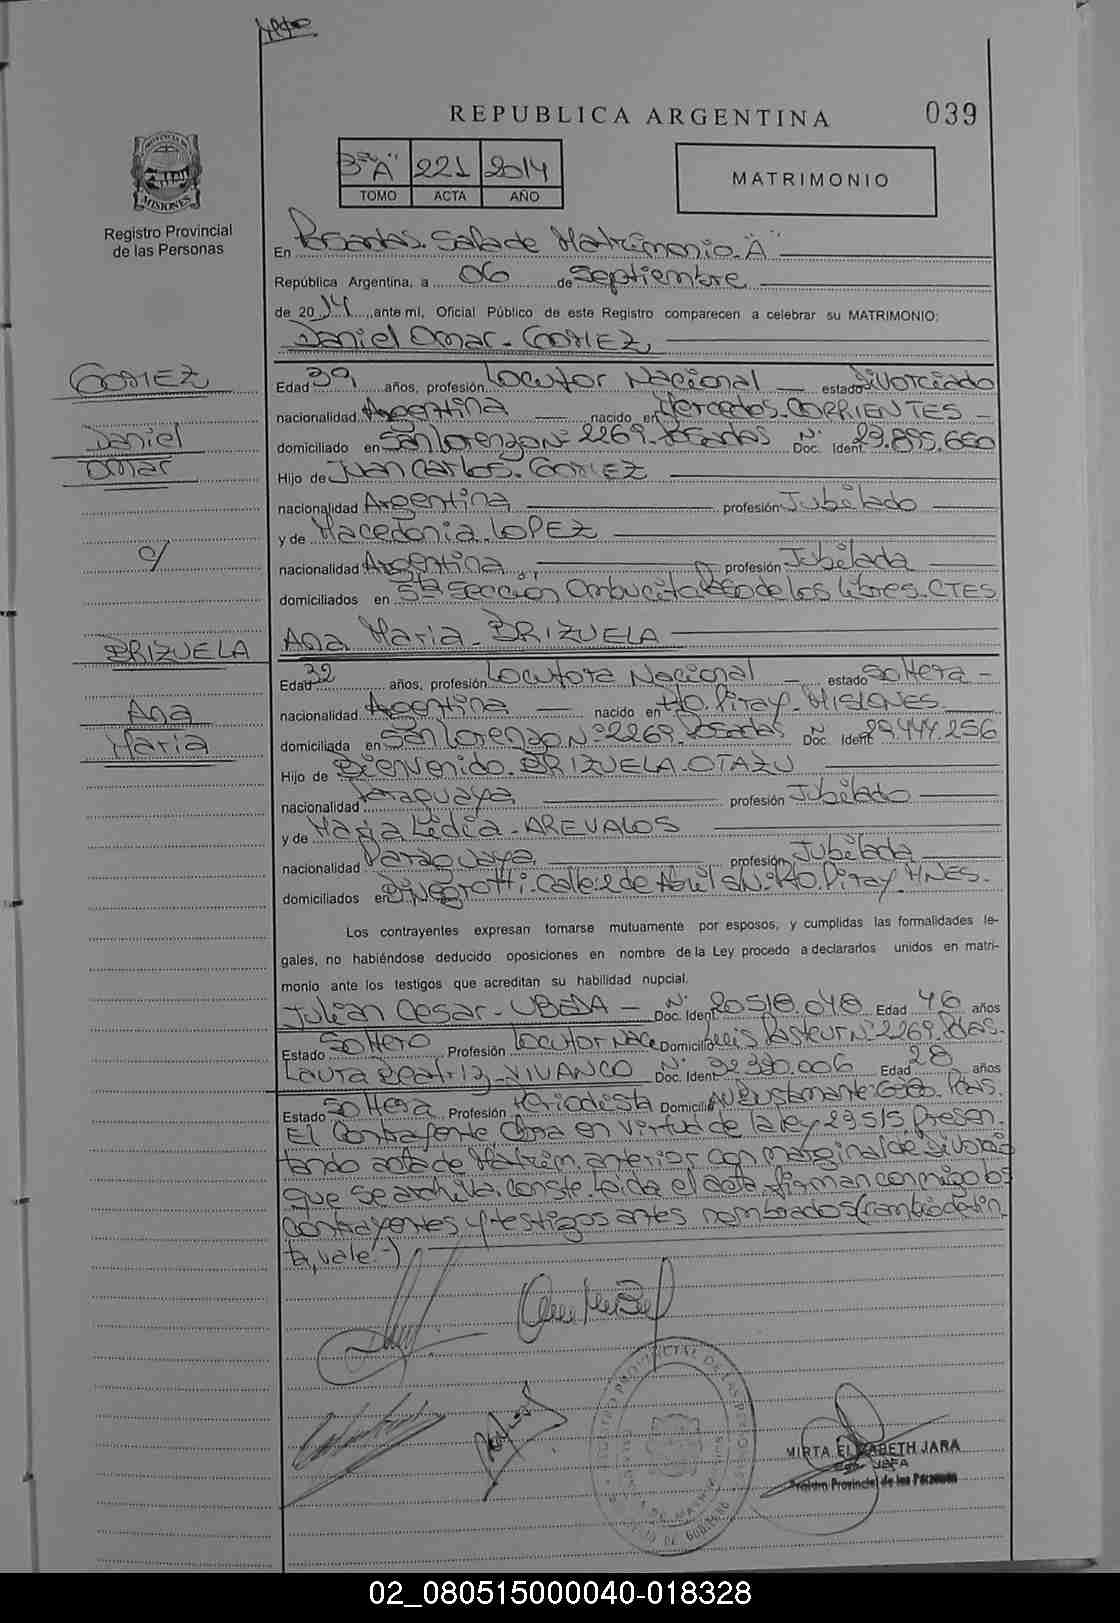 REPUBLICA ARGENTINA
039
3º "A" 221 2014
TOMO ACTA AÑO
MATRIMONIO
PROVINCIA DE MISIONES
Registro Provincial
de las Personas
En Posadas. Sala de Matrimonio. "A"
República Argentina, a 06 de Septiembre
de 2014, ante mí, Oficial Público de este Registro comparecen a celebrar su MATRIMONIO:
Daniel Omar. GOMEZ
GOMEZ
Daniel
Omar
c/
BRIZUELA
Ana
Maria
Edad 39 años, profesión Locutor Nacional — estado Divorciado
nacionalidad Argentina — nacido en Mercedes. CORRIENTES -
domiciliado en San Lorenzo Nº 2269. Posadas Nº Doc. Ident. 23.895.660
Hijo de Juan Carlos. GOMEZ
nacionalidad Argentina profesión Jubilado
y de Macedonia. LOPEZ
nacionalidad Argentina profesión Jubilada
domiciliados en 5ta Seccion Ombucito. Paso de los Libres. CTES
Ana Maria. BRIZUELA
Edad 32 años, profesión Locutora Nacional — estado Soltera -
nacionalidad Argentina — nacido en Pto. Piray. MISIONES
domiciliada en San Lorenzo Nº 2269. Posadas Nº Doc. Ident. 29.444.256
Hijo de Bienvenido. BRIZUELA OTAZU
nacionalidad Paraguaya profesión Jubilado
y de Maria Lidia. AREVALOS
nacionalidad Paraguaya profesión Jubilada
domiciliados en Calle 2 de Abril S/Nº. Pto. Piray. MNES.
Los contrayentes expresan tomarse mutuamente por esposos, y cumplidas las formalidades le-
gales, no habiéndose deducido oposiciones en nombre de la Ley procedo a declararlos unidos en matri-
monio ante los testigos que acreditan su habilidad nupcial.
Julian Cesar. UBEDA — Nº Doc. Ident. 20.518.048 Edad 46 años
Estado Soltero Profesión Locutor Nac. Domicilio Luis Pasteur Nº 2269. Pdas.
Laura Beatriz. VIVANCO Nº Doc. Ident. 32.390.006 Edad 28 años
Estado Soltera Profesión Periodista Domicilio Av. Bustamante Pdas.
El Contrayente, obra en virtud de la ley 23.515 presen
tando acta de Matrim. anterior con marginal de Divorcio
que se archiva. conste. Leida el acta, firman conmigo los
contrayentes y testigos antes nombrados (cambio de tin
ta, vale.-)
REGISTRO PROVINCIAL DE LAS PERSONAS
MIRTA ELIZABETH JARA
JEFA
Registro Provincial de las Personas
02_080515000040-018328